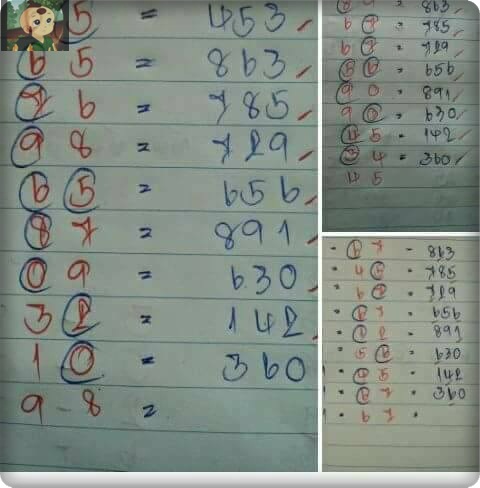 5 = 453
65 = 863
76 = 785
98 = 729
65 = 656
87 = 891
09 = 630
32 = 142
10 = 360
9-8 =
= 863
67 = 785
67 = 729
56 = 656
90 = 891
90 = 630
45 = 142
34 = 360
45
67 - 863
45 - 785
62 - 729
67 - 656
- 891
56 - 630
- 142
67 - 360
67 =